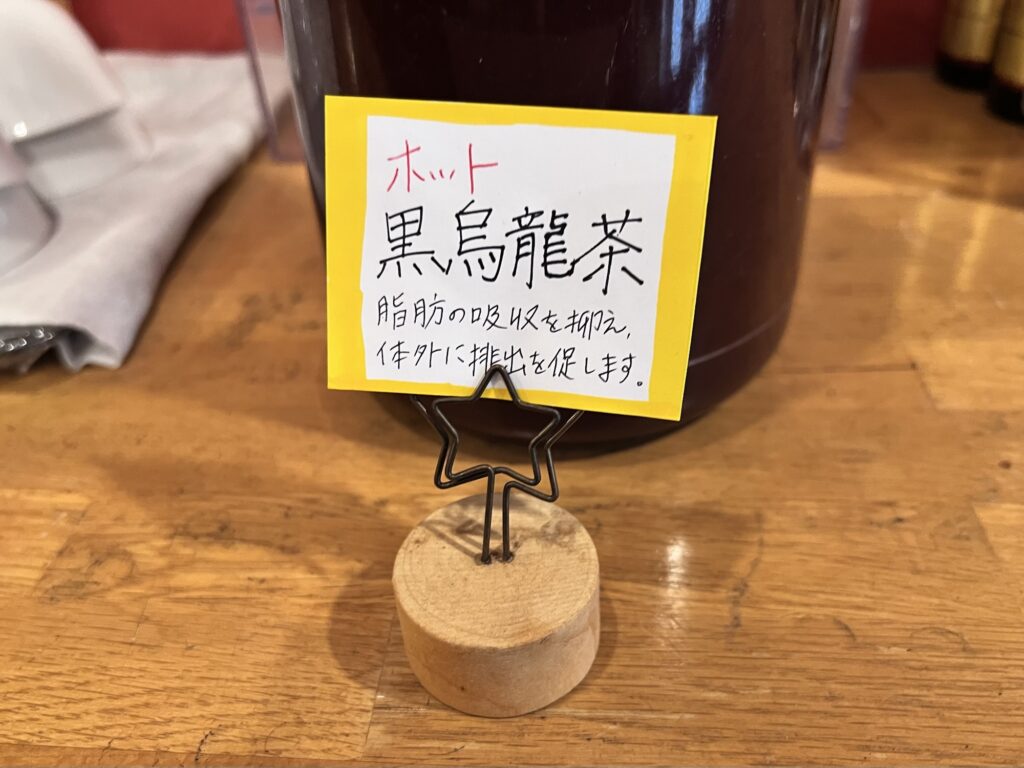 ホット
黒烏龍茶
脂肪の吸収を抑え、
体外に排出を促します。